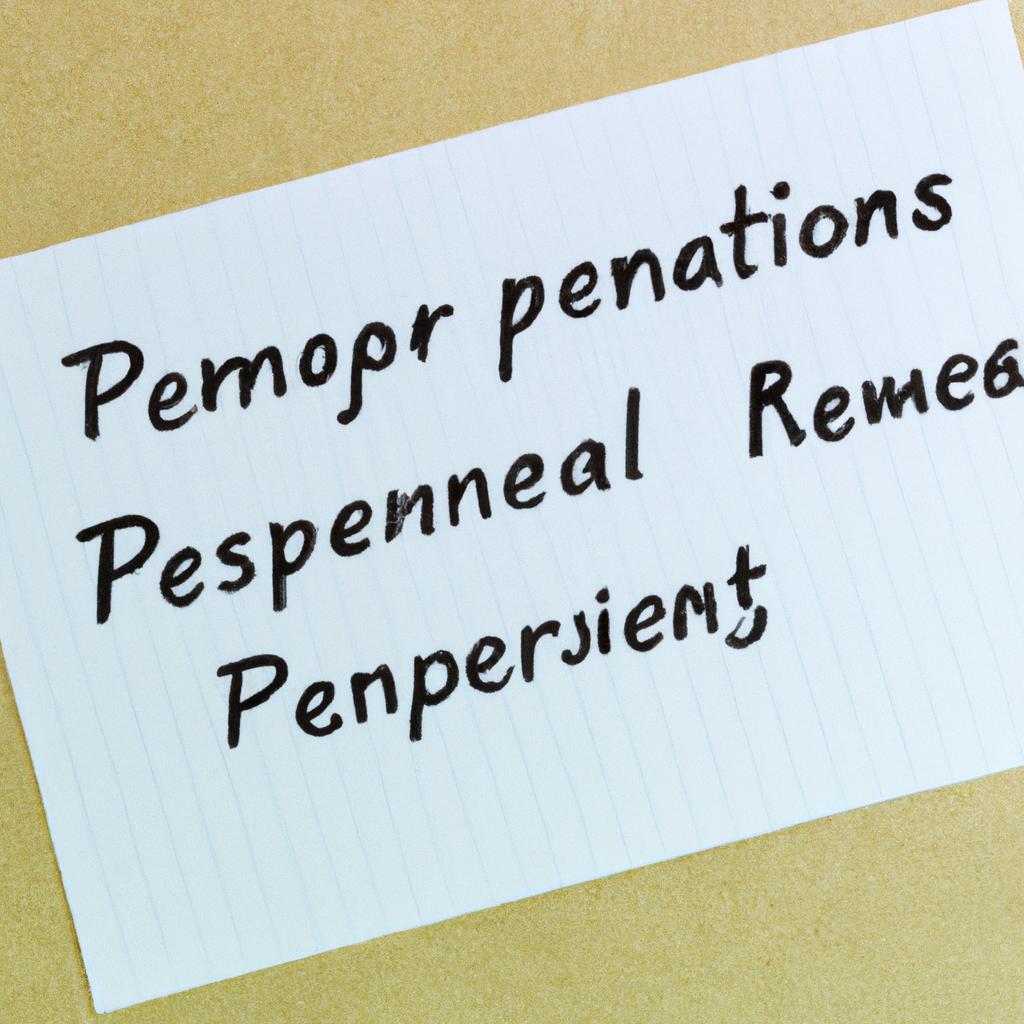 Pemopr penations
Pespenneal Remea
Penperjient